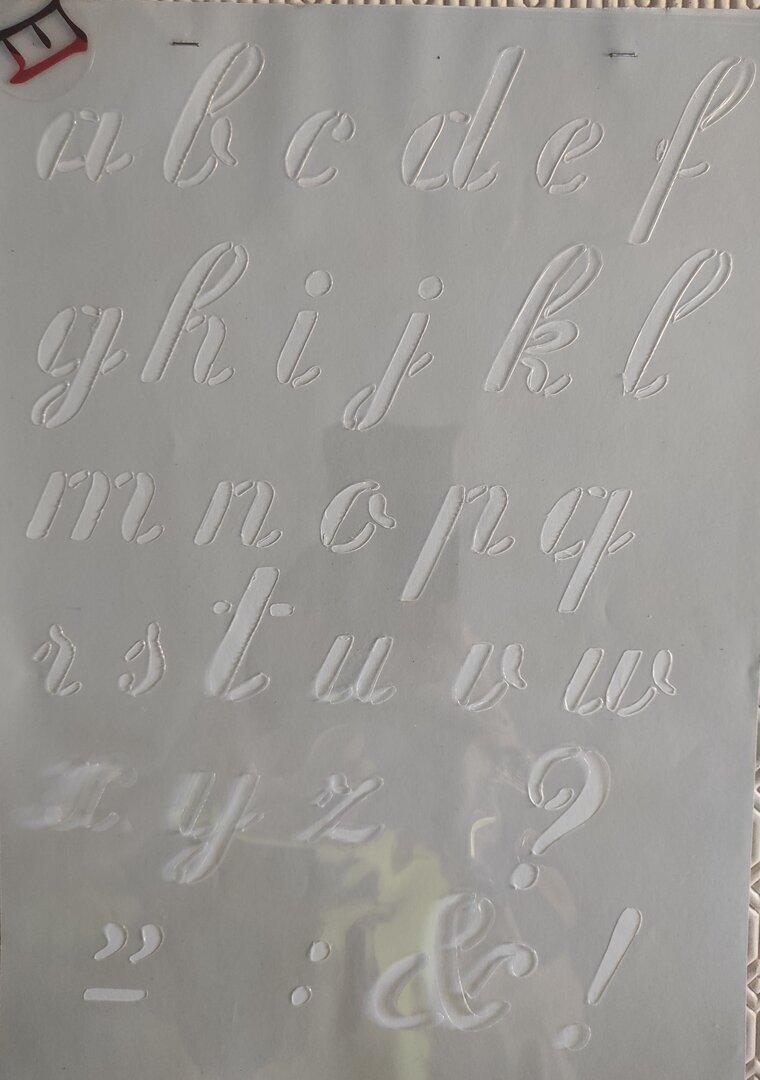 a b c d e f
g h i j k l
m n o p q
r s t u v w
x y z ?
” - : & !